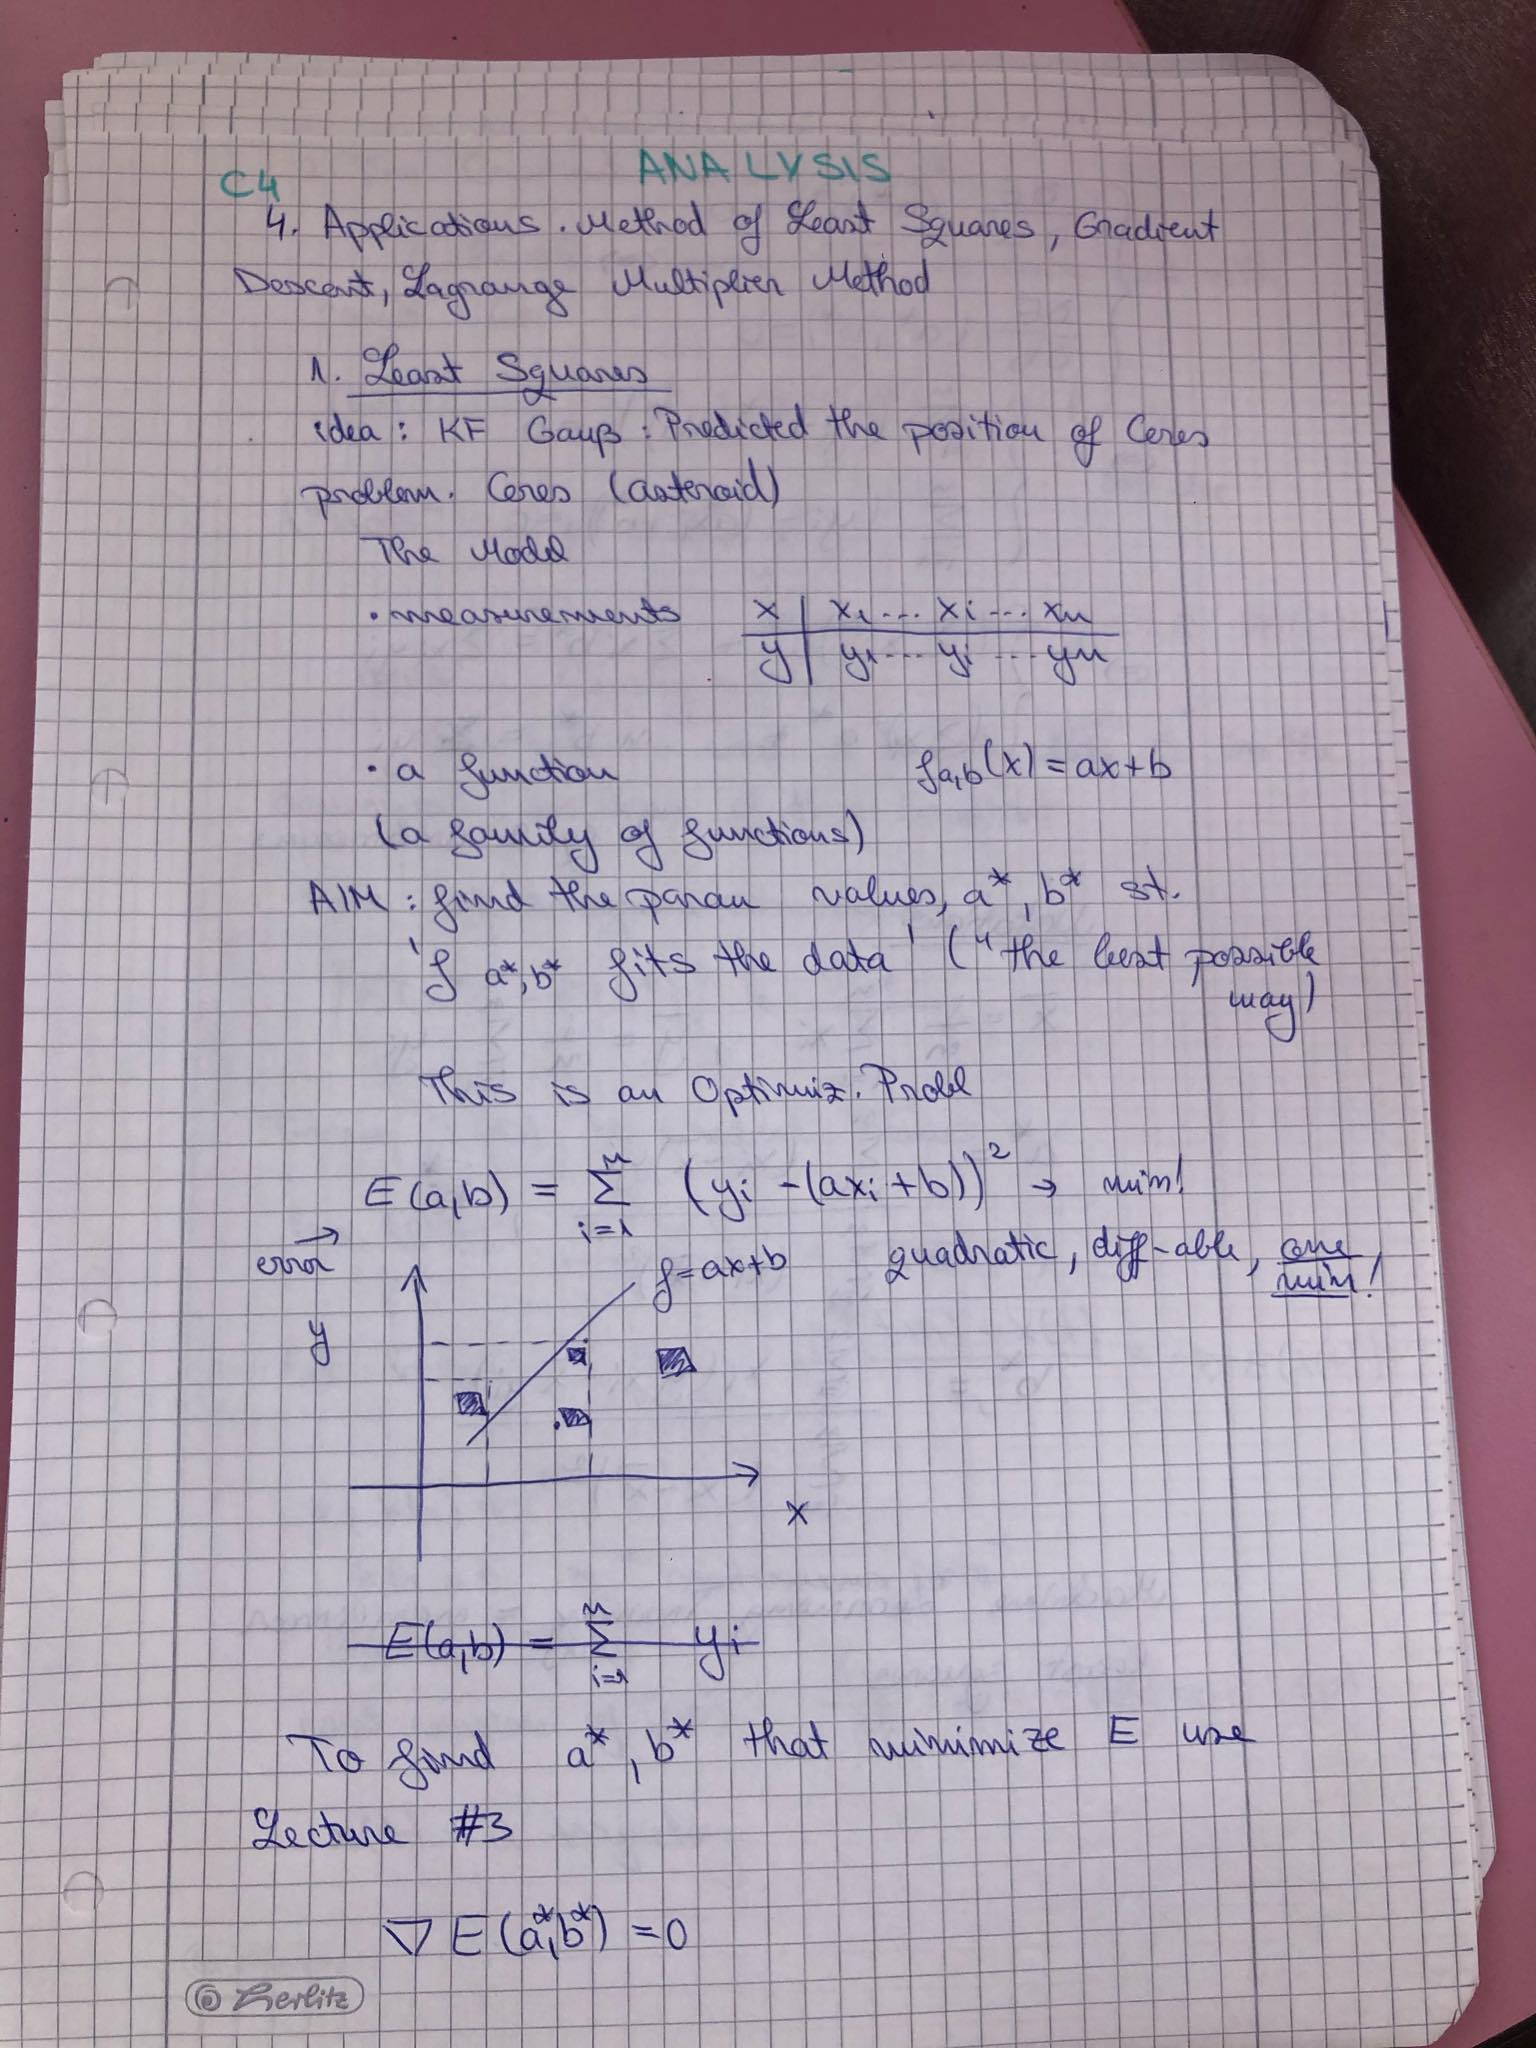 ANALYSIS
C4
4. Applications. Method of Least Squares, Gradient
Descent, Lagrange Multiplier Method
1. Least Squares
idea: KF Gauß: Predicted the position of Ceres
problem. Ceres (asteroid)
The Model
• measurements x | x1 ... xi ... xn
y | y1 ... yi ... yn
• a function fa,b(x) = ax+b
(a family of functions)
AIM: find the param values, a*, b* st.
'f a*,b* fits the data' ("the best possible
way)
This is an Optimiz. Probl
E(a,b) = n∑i=1 (yi - (axi + b))² → min!
error
quadratic, diff-able, one
min!
f=ax+b
y
x
E(a,b) = n∑i=1 yi
To find a*, b* that minimize E use
Lecture #3
∇ E(a*,b*) = 0
Herlitz